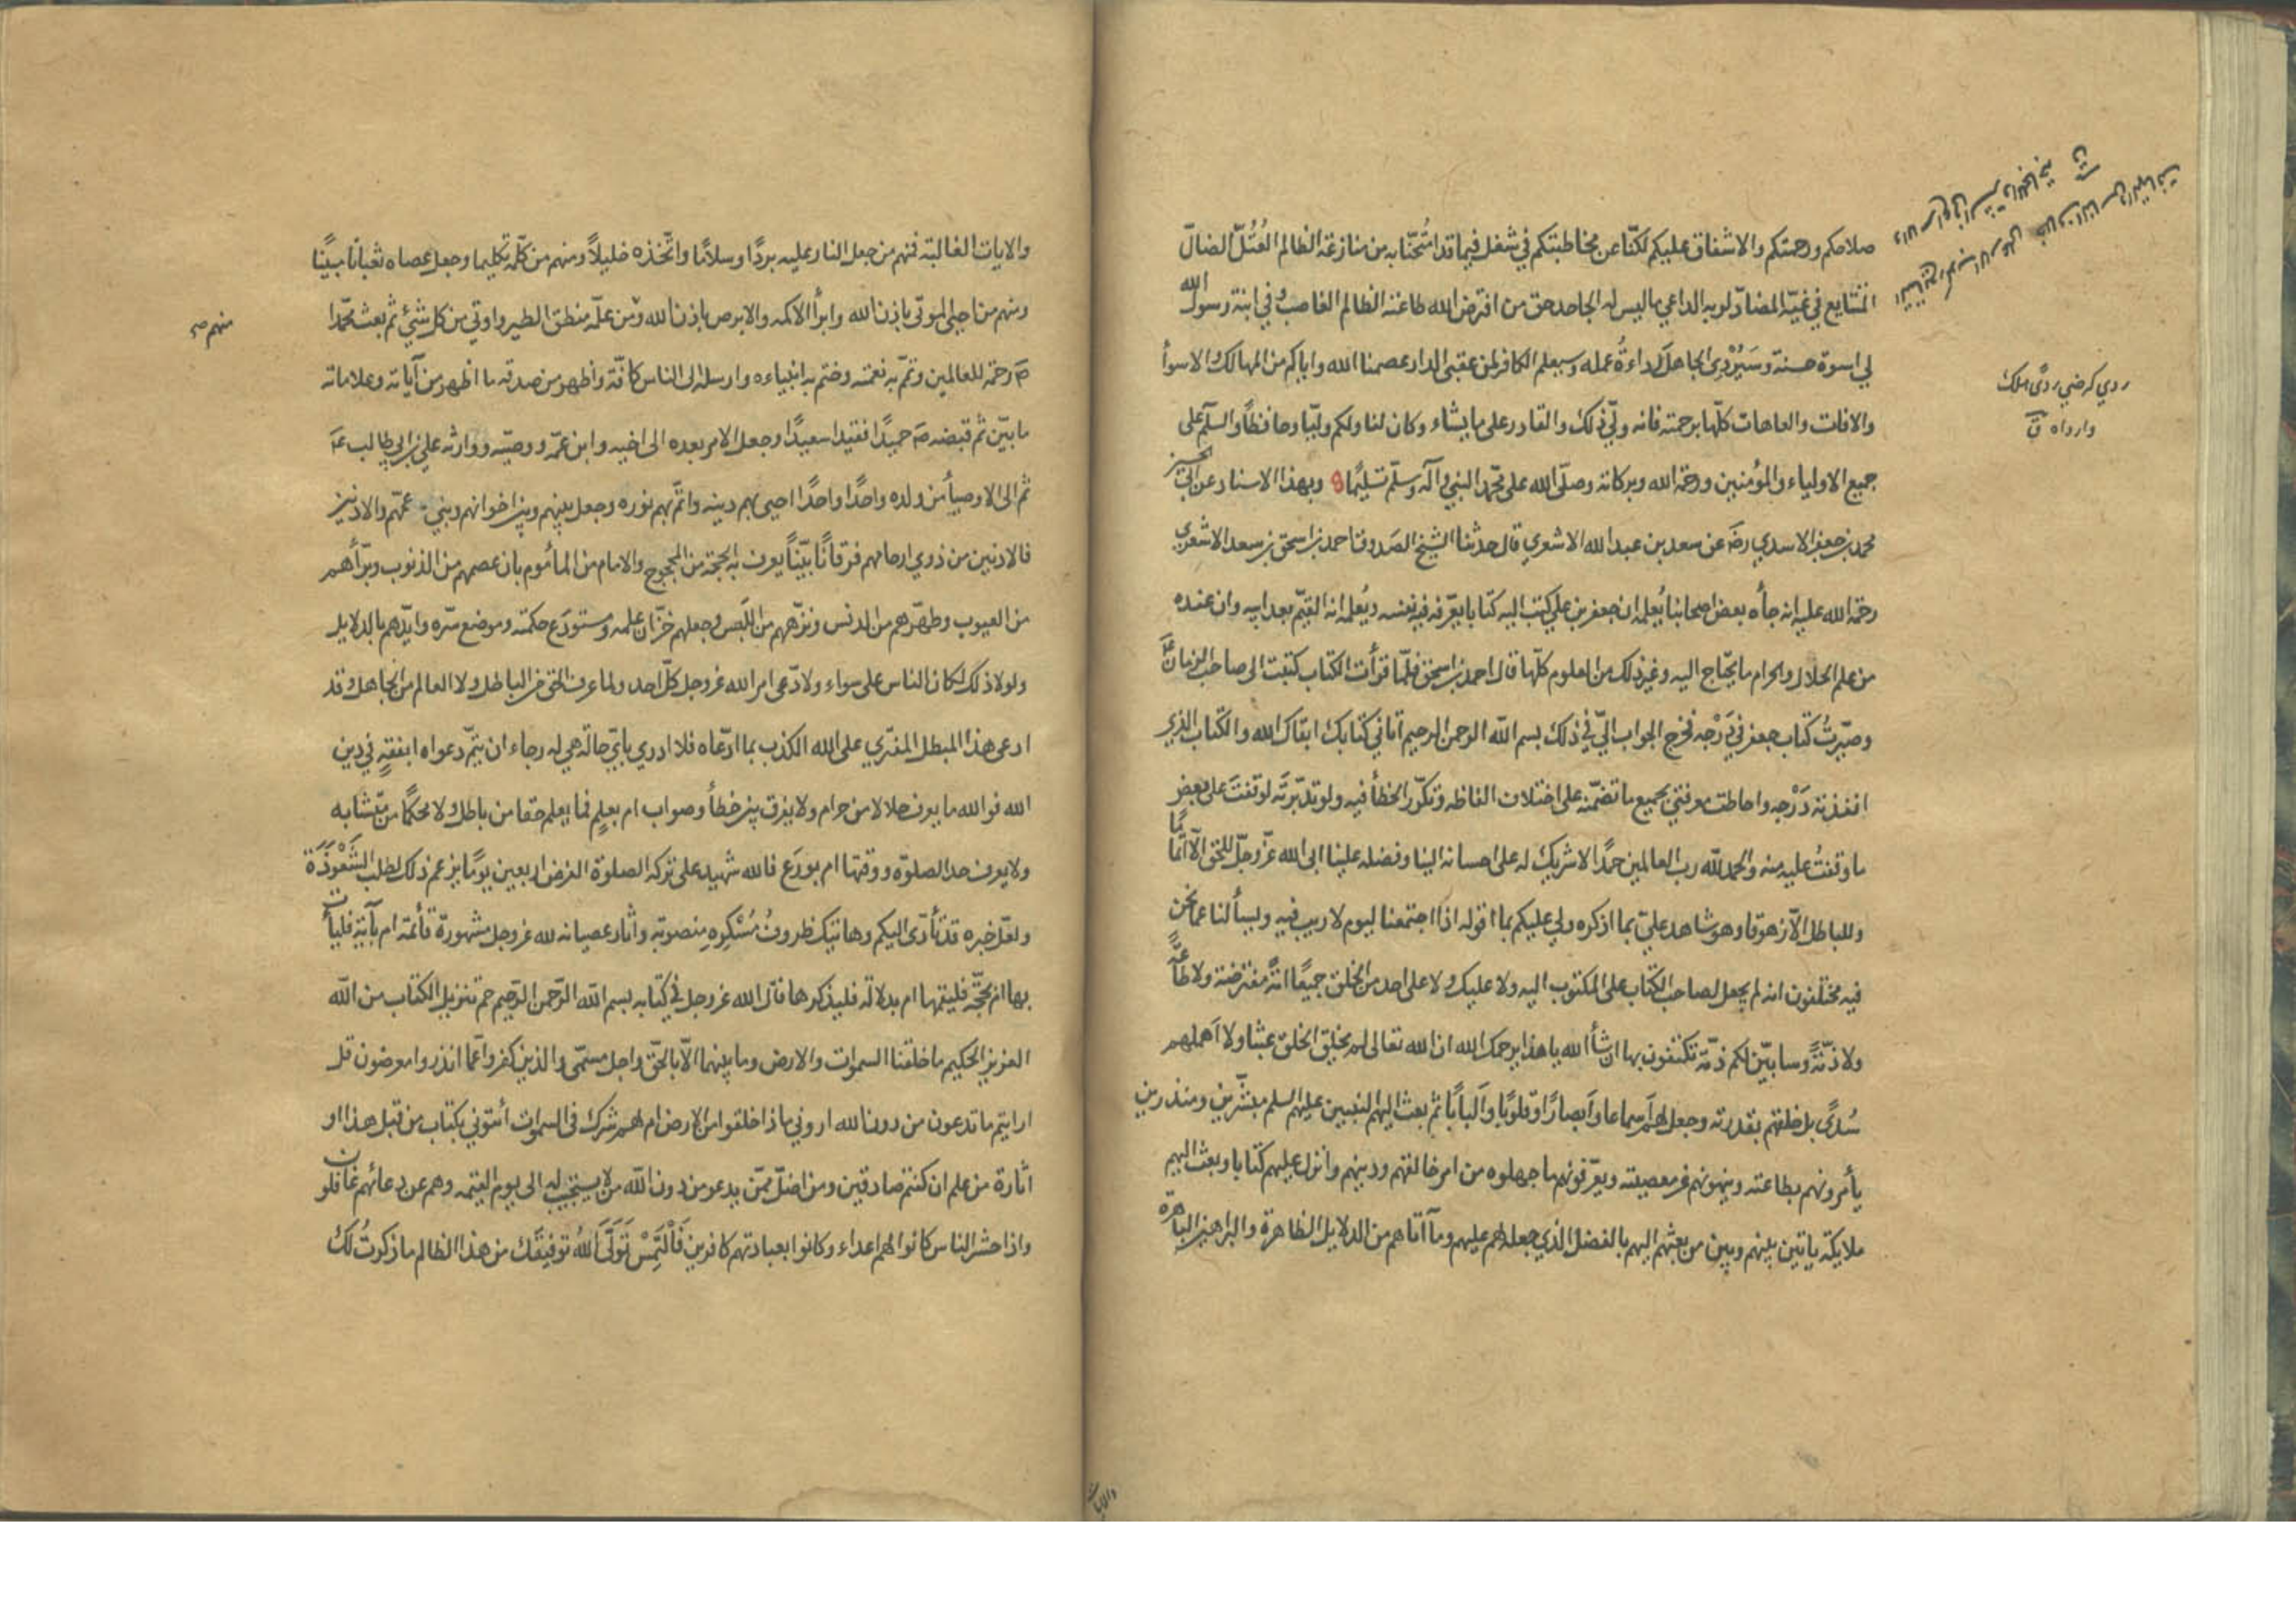 صلاحكم ورحمتكم والاشفاق عليكم لكنّا عن مخاطبتكم في شغل فيما قد امتُحنّا به من منازعة الظالم العُتُلّ الضالّ
المتتايع في غيّه المضادّ لربه الداعي ما ليس له الجاحد حق من افترض الله طاعته الظالم الغاصب وفي ابنة رسول الله
لي اسوة حسنة وسَيُرْدِي الجاهلَ رداءةُ عمله وسيعلم الكافر لمن عقبى الدار عصمنا الله واياكم من المهالك والاسوأ
والافات والعاهات كلّها برحمته فانه وليّ ذلك والقادر على ما يشاء وكان لنا ولكم وليّا وحافظًا والسلم على
جميع الاولياء والمؤمنين ورحمة الله وبركاته وصلّى الله على محمّد النبي وآله وسلّم تسليمًا وبهذا الاسناد عن ابي الحسين
محمد بن جعفر الاسدي رضَ عن سعد بن عبد الله الاشعري قال حدثنا الشيخ الصدوق احمد بن اسحق بن سعد الاشعري
رحمة الله عليه انه جاءه بعض اصحابنا يُعلمه ان جعفر بن علي كتب اليه كتابا يعرّفه فيه نفسه ويُعلمه انه القيّم بعد ابيه وان عنده
من علم الحلال والحرام ما يحتاج اليه وغير ذلك من العلوم كلّها قال احمد بن اسحق فلمّا قرأت الكتاب كتبت الى صاحب الزمان عَ
وصيّرتُ كتاب جعفر في دَرْجه فخرج الجواب اليّ في ذلك بسم الله الرحمن الرحيم اتاني كتابك ابقاك الله والكتاب الذي
انفذته دَرْجه واحاطت معرفتي بجميع ما تضمّنه على اختلاف الفاظه وتكرّر الخطأ فيه ولو تدبّرتَه لوقفتَ على بعض
ما وقفتُ عليه منه والحمد لله رب العالمين حمدًا لا شريك له على احسانه الينا وفضله علينا ابى الله عزّ وجلّ للحق الّا اتمامًا
وللباطل الّا زهوقا وهو شاهد عليّ بما اذكره ولي عليكم بما اقوله اذا اجتمعنا ليوم لا ريب فيه ويسألنا عما نحن
فيه مختلفون انه لم يجعل لصاحب الكتاب على المكتوب اليه ولا عليك ولا على احد من الخلق جميعًا امامة مفترضة ولا طاعةً
ولا ذمّةً وسابيّن لكم ذمّة تكتفون بها ان شأ الله يا هذا يرحمك الله ان الله تعالى لم يخلق الخلق عبثا ولا اهملهم
سُدًى بل خلقهم بقدرته وجعل لهم اسماعا وابصارًا وقلوبًا والبابًا ثم بعث اليهم النبيين عليهم السلم مبشّرين ومنذرين
يأمرونهم بطاعته وينهونهم عن معصيته ويعرّفونهم ما جهلوه من امر خالقهم ودينهم وانزل عليهم كتابا وبعث اليهم
ملايكة ياتين بينهم وبين من بعثهم اليهم بالفضل الذي جعله لهم عليهم وما آتاهم من الدلايل الظاهرة والبراهين الباهرة
ردي كرضي ردًى هلك
وارداه ق
والايات
والايات الغالبة فمنهم من جعل النار عليه بردًا وسلامًا واتّخذه خليلاً ومنهم من كلّمه تكليما وجعل عصاه ثعبانا مبينًا
ومنهم من احيى الموتى باذن الله وابرأ الاكمه والابرص باذن الله ومن علّمه منطق الطير واوتي من كل شيٍ ثم بعث محمّدا
صَ رحمة للعالمين وتمّم به نعمته وختم به انبياءه وارسله الى الناس كافّة واظهر من صدقه ما اظهر من آياته وعلاماته
ما بيّن ثم قبضه صَ حميدًا فقيدا سعيدًا وجعل الامر بعده الى اخيه وابن عمّه ووصيّه ووارثه علي بن ابي طالب عَم
ثم الى الاوصيأ من ولده واحدًا واحدًا احيى بهم دينه واتمّ بهم نوره وجعل بينهم وبين اخوانهم وبني عمّهم والادنين
فالادنين من ذوي ارحامهم فرقانًا بيّنًا يعرف به الحجة من المحجوج والامام من المأموم بان عصمهم من الذنوب وبرّأهم
من العيوب وطهّرهم من الدنس ونزّههم من اللَبس وجعلهم خزّان علمه ومستودع حكمته وموضع سرّه وايّدهم بالدلايل
ولولا ذلك لكان الناس على سواء ولادّعى امر الله عز وجل كلّ احد ولما عرف الحق من الباطل ولا العالم من الجاهل وقد
ادعى هذا المبطل المفتري على الله الكذب بما ادّعاه فلا ادري بايّ حالة هي له رجاء ان يتمّ دعواه ابفقهٍ في دين
الله فو الله ما يعرف حلالا من حرام ولا يفرق بين خطأ وصواب ام بعلمٍ فما يعلم حقا من باطل ولا محكمًا من متشابه
ولا يعرف حد الصلوة ووقتها ام بورَع فالله شهيد على تركه الصلوة الفرض اربعين يومًا يزعم ذلك لطلب الشَعْوَذَة
ولعل خبره قد تأدّى اليكم وهاتيك ظروفُ مُسْكِرِهِ منصوبة واثار عصيانه لله عز وجل مشهورة قائمة ام بآيةٍ فليأت
بها ام بحجّة فليقمها ام بدلالة فليذكرها قال الله عز وجل في كتابه بسم الله الرّحمن الرّحيم حم تنزيل الكتاب من الله
العزيز الحكيم ما خلقنا السموات والارض وما بينهما الّا بالحقّ واجل مسمّى والذين كفروا عمّا انذروا معرضون قل
ارايتم ما تدعون من دون الله اروني ماذا خلقوا من الارض ام لهم شرك في السموات ائتوني بكتاب من قبل هذا او
اثارة من علم ان كنتم صادقين ومن اضلّ ممّن يدعو من دون الله من لا يستجيب له الى يوم القيمه وهم عن دعائهم غافلون
واذا حشر الناس كانوا لهم اعداء وكانوا بعبادتهم كافرين فَالْتَمِسْ تَوَلَّى اللهُ توفيقَك من هذا الظالم ما ذكرتُ لك
منهم صح